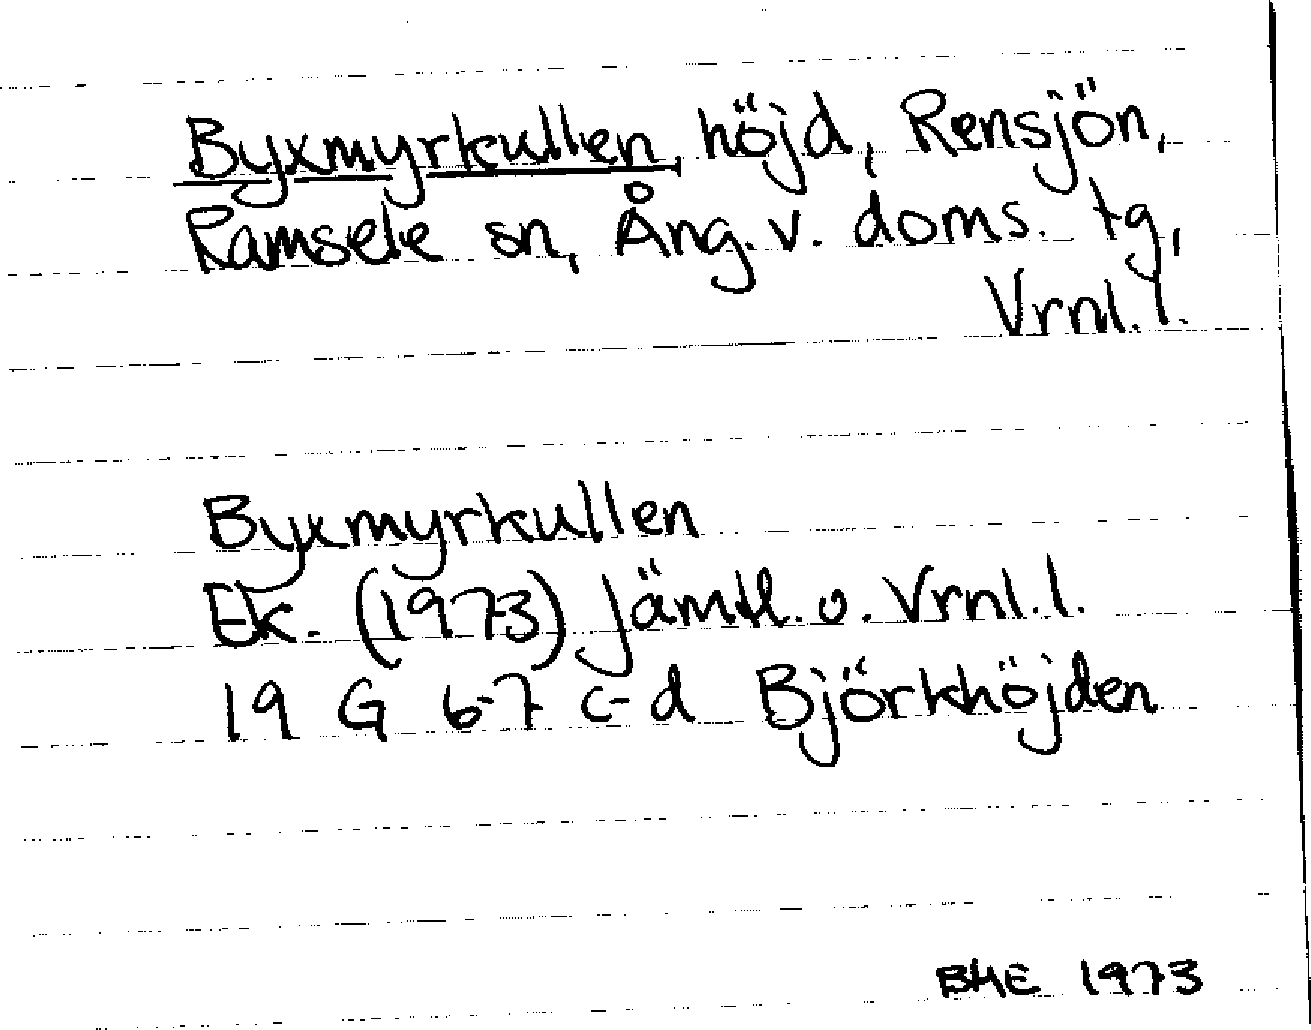 Byxmyrkullen, höjd, Rensjön,
Ramsele sn, Ång. v. doms. tg,
Vrnl. l.
Byxmyrkullen
Ek. (1973) Jämtl. o. Vrnl. l.
19 G 6-7 c-d Björkhöjden
BHE 1973